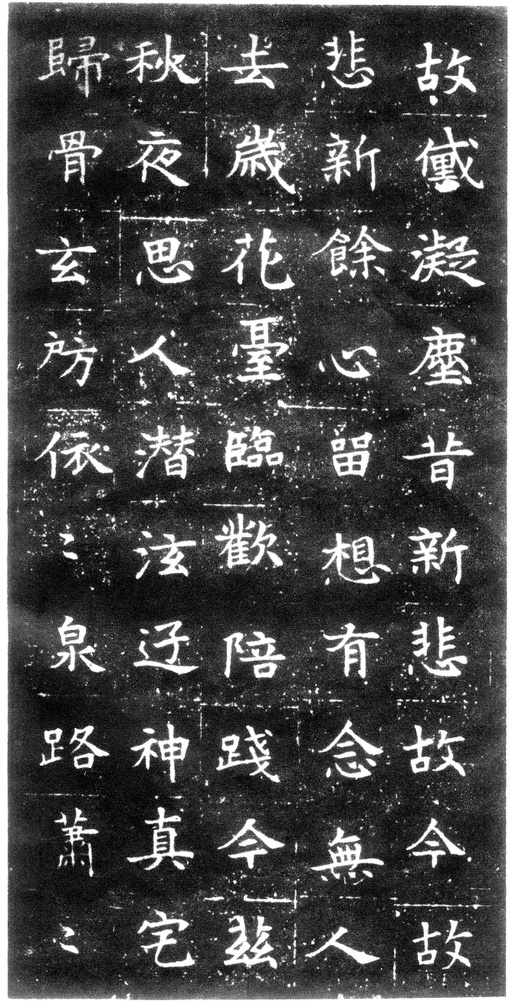 故黛凝塵昔新悲故今故
悲新餘心留想有念無人
去歲花臺臨歡陪踐今茲
秋夜思人潜泫迓神真宅
歸骨玄房依〻泉路蕭〻